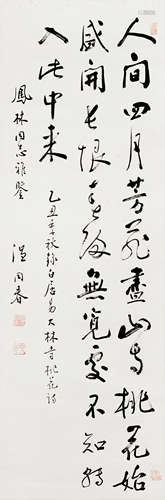 人间四月芳菲尽山寺桃花始
盛开长恨春归无觅处不知转
入此中来
乙丑年秋录白居易大林寺桃花诗
凤林同志雅鉴
温同春